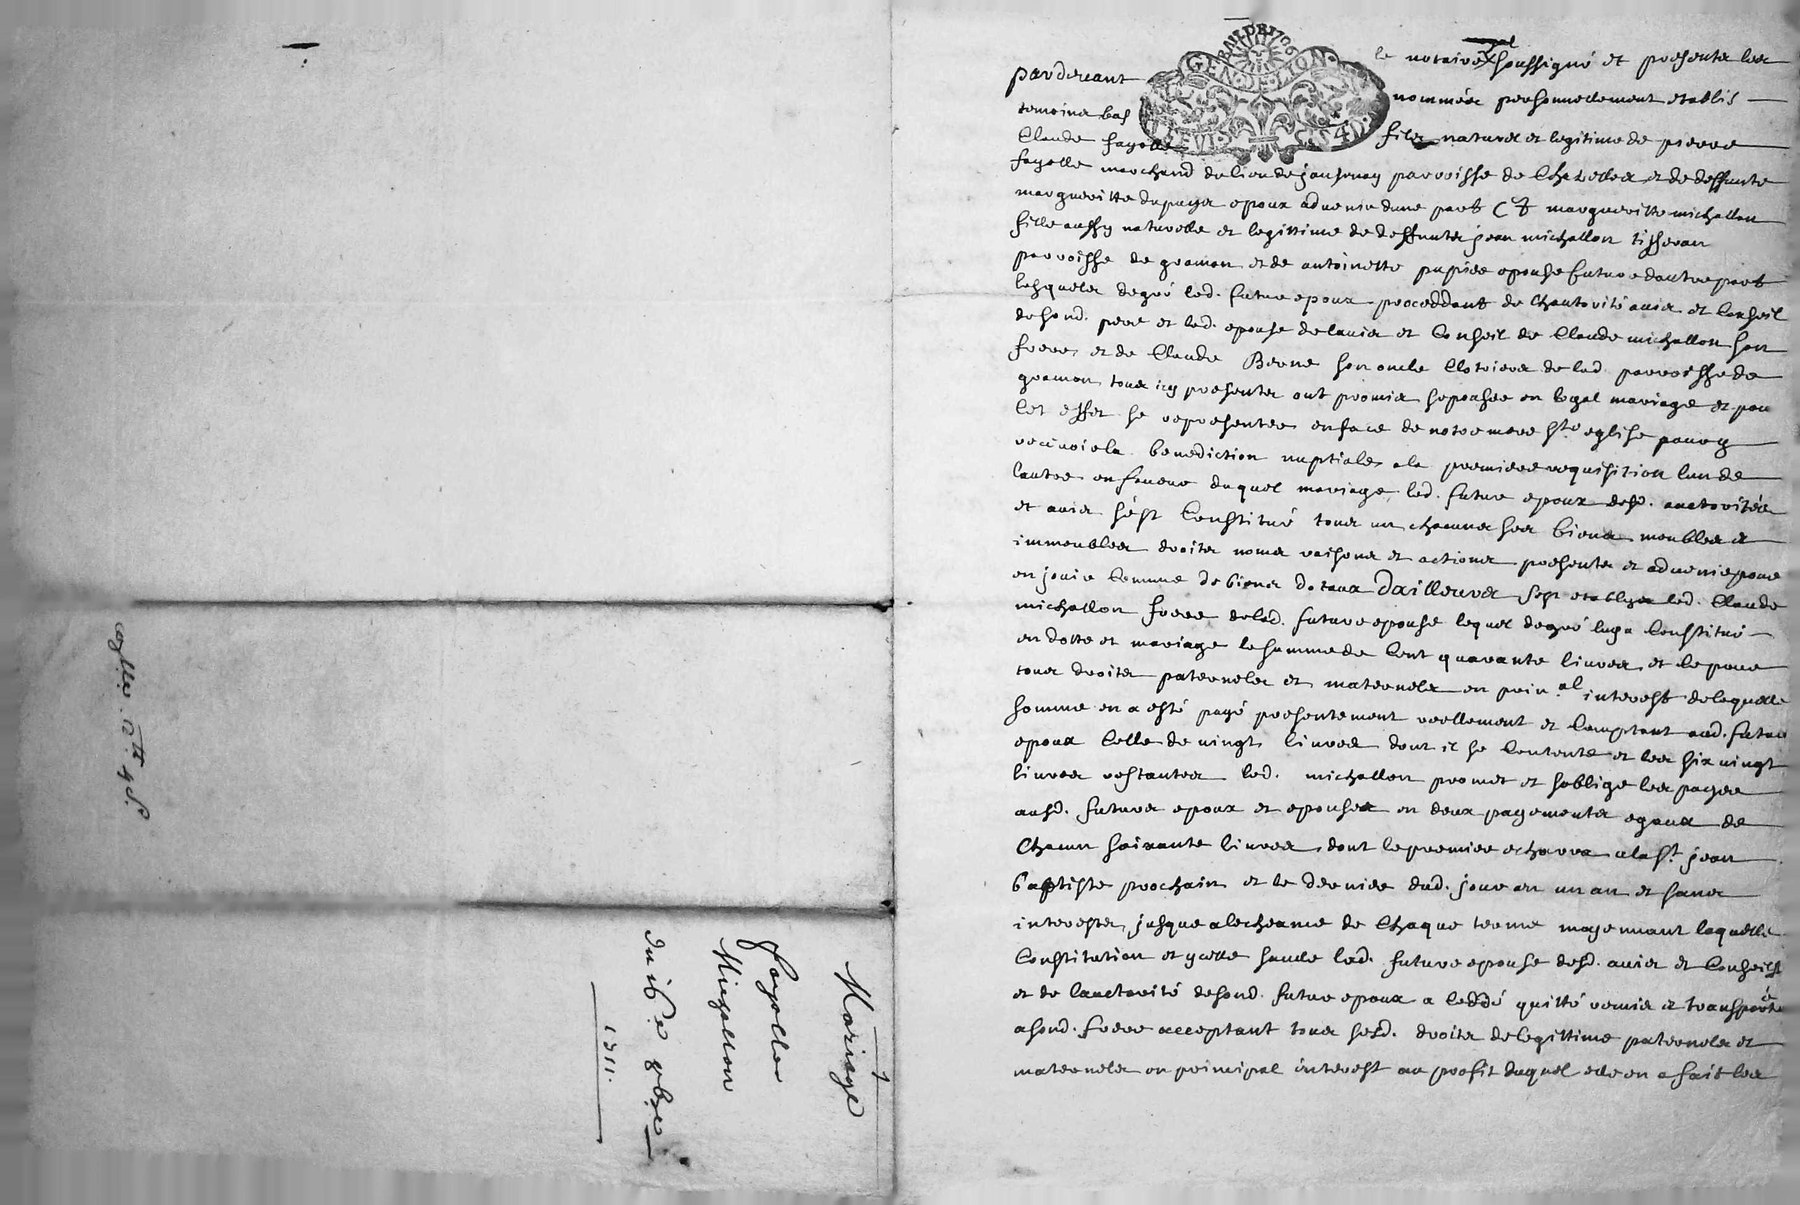 pardevant le notaire royal soussigné et presentz les
temoins bas nommés personnellement establis
Claude fayolle filz naturel et legitime de pierre
fayolle marchand du lieu de jansenay parroisse de Chazelles et de deffunte
margueritte dupuys epoux advenir dune part Et margueritte michallon
fille aussy naturelle et legittime de deffuntz jean michallon tisseran
parroisse de gramon et de antoinette pupier epouse future dautre part
lesquelz de gré led. futur epoux proceddant de lhautorité avis et Conseil
de sond. pere et lad. epouse de lavis et Conseil de Claude michallon son
frere et de Claude Berne son oncle Clotriers de lad. parroisse de
gramon tous icy presentz ont promis sepouser en legal mariage et pour
cet effet se representer en face de notre mere Ste eglise pour y
recevoir la benediction nuptiale a la premiere requisition lun de
lautre en faveur duquel mariage led. futur epoux desd. auctorités
et avis sést Constitué tous un chacuns ses biens meubles et
immeubles droitz noms raisons et actions presentz et advenir pour
en jouir Comme de biens dotaux Dailleurs sest establys led. Claude
michallon frere de lad. future epouse lequel de gré luy a Constitué
en dotte et mariage la somme de Cent quarante livres et ce pour
tous droitz paternelz et maternelz en prin.al interest de laquelle
somme en a esté payé presentement reellement et Comptant aud. futur
epoux Celle de vingt livres dont il se Contente et les six vingt
livres restantes led. michallon promet et soblige les payer
ausd. futurs epoux et epouse en deux payementz egaux de
Chacun soixante livres dont le premier echerra a la St. jean
baptiste prochain et le dernier dud. jour en un an et sans
interestz jusque a lecheance de Chaque terme moyennant laquelle
Constitution et ycelle sauve lad. future epouse desd. avis et Conseilz
et de lauctorité de sond. futur epoux a ceddé quitté remis et transporté
a sond. frere acceptant tous sesd. droitz de legittime paternelz et
maternelz en principal interest au profit duquel elle en a fait les
Mariage
fayolle
Michallon
du 16e 9bre
1711.